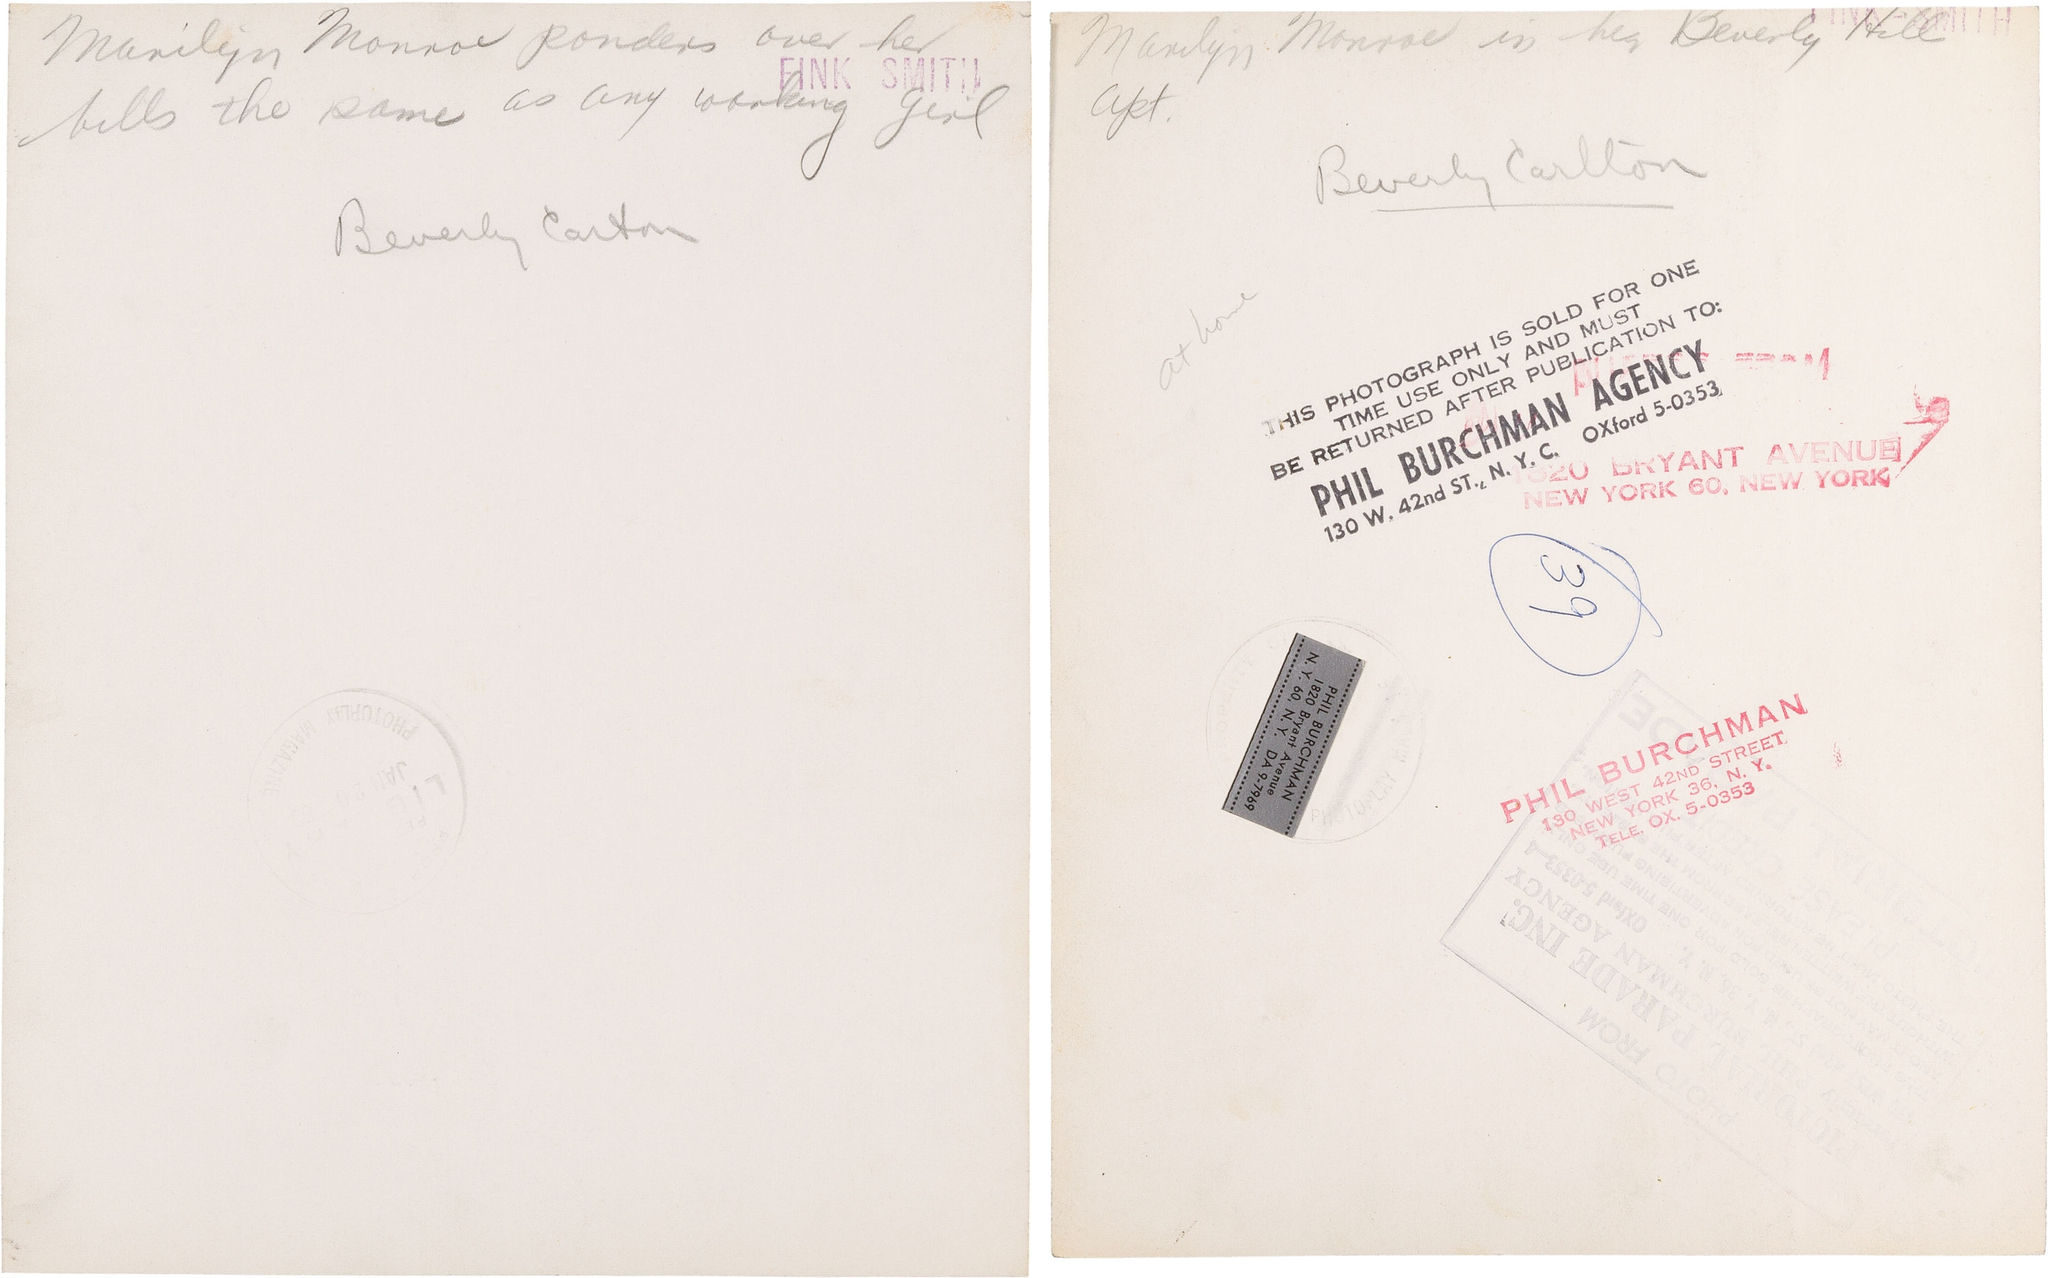 Marilyn Monroe ponders over her
FINK SMITH
bills the same as any working girl
Beverly Carlton
PHOTOPLAY MAGAZINE
JAN
FINK SMITH
Marilyn Monroe in her Beverly Hill
apt.
Beverly Carlton
at home
THIS PHOTOGRAPH IS SOLD FOR ONE
TIME USE ONLY AND MUST
BE RETURNED AFTER PUBLICATION TO:
PHIL BURCHMAN AGENCY
130 W. 42nd ST., N. Y. C. OXford 5-0353
FROM
1820 BRYANT AVENUE
NEW YORK 60, NEW YORK
39
PHIL BURCHMAN
1820 Bryant Avenue
N. Y. 60 N. Y. DA 9-7969
PHOTOPLAY
PHIL BURCHMAN
130 WEST 42ND STREET
NEW YORK 36, N. Y.
TELE. OX. 5-0353
PHOTO FROM
PICTORIAL PARADE INC.
PHIL BURCHMAN AGENCY
N. Y. 36, N. Y. OXford 5-0353-4